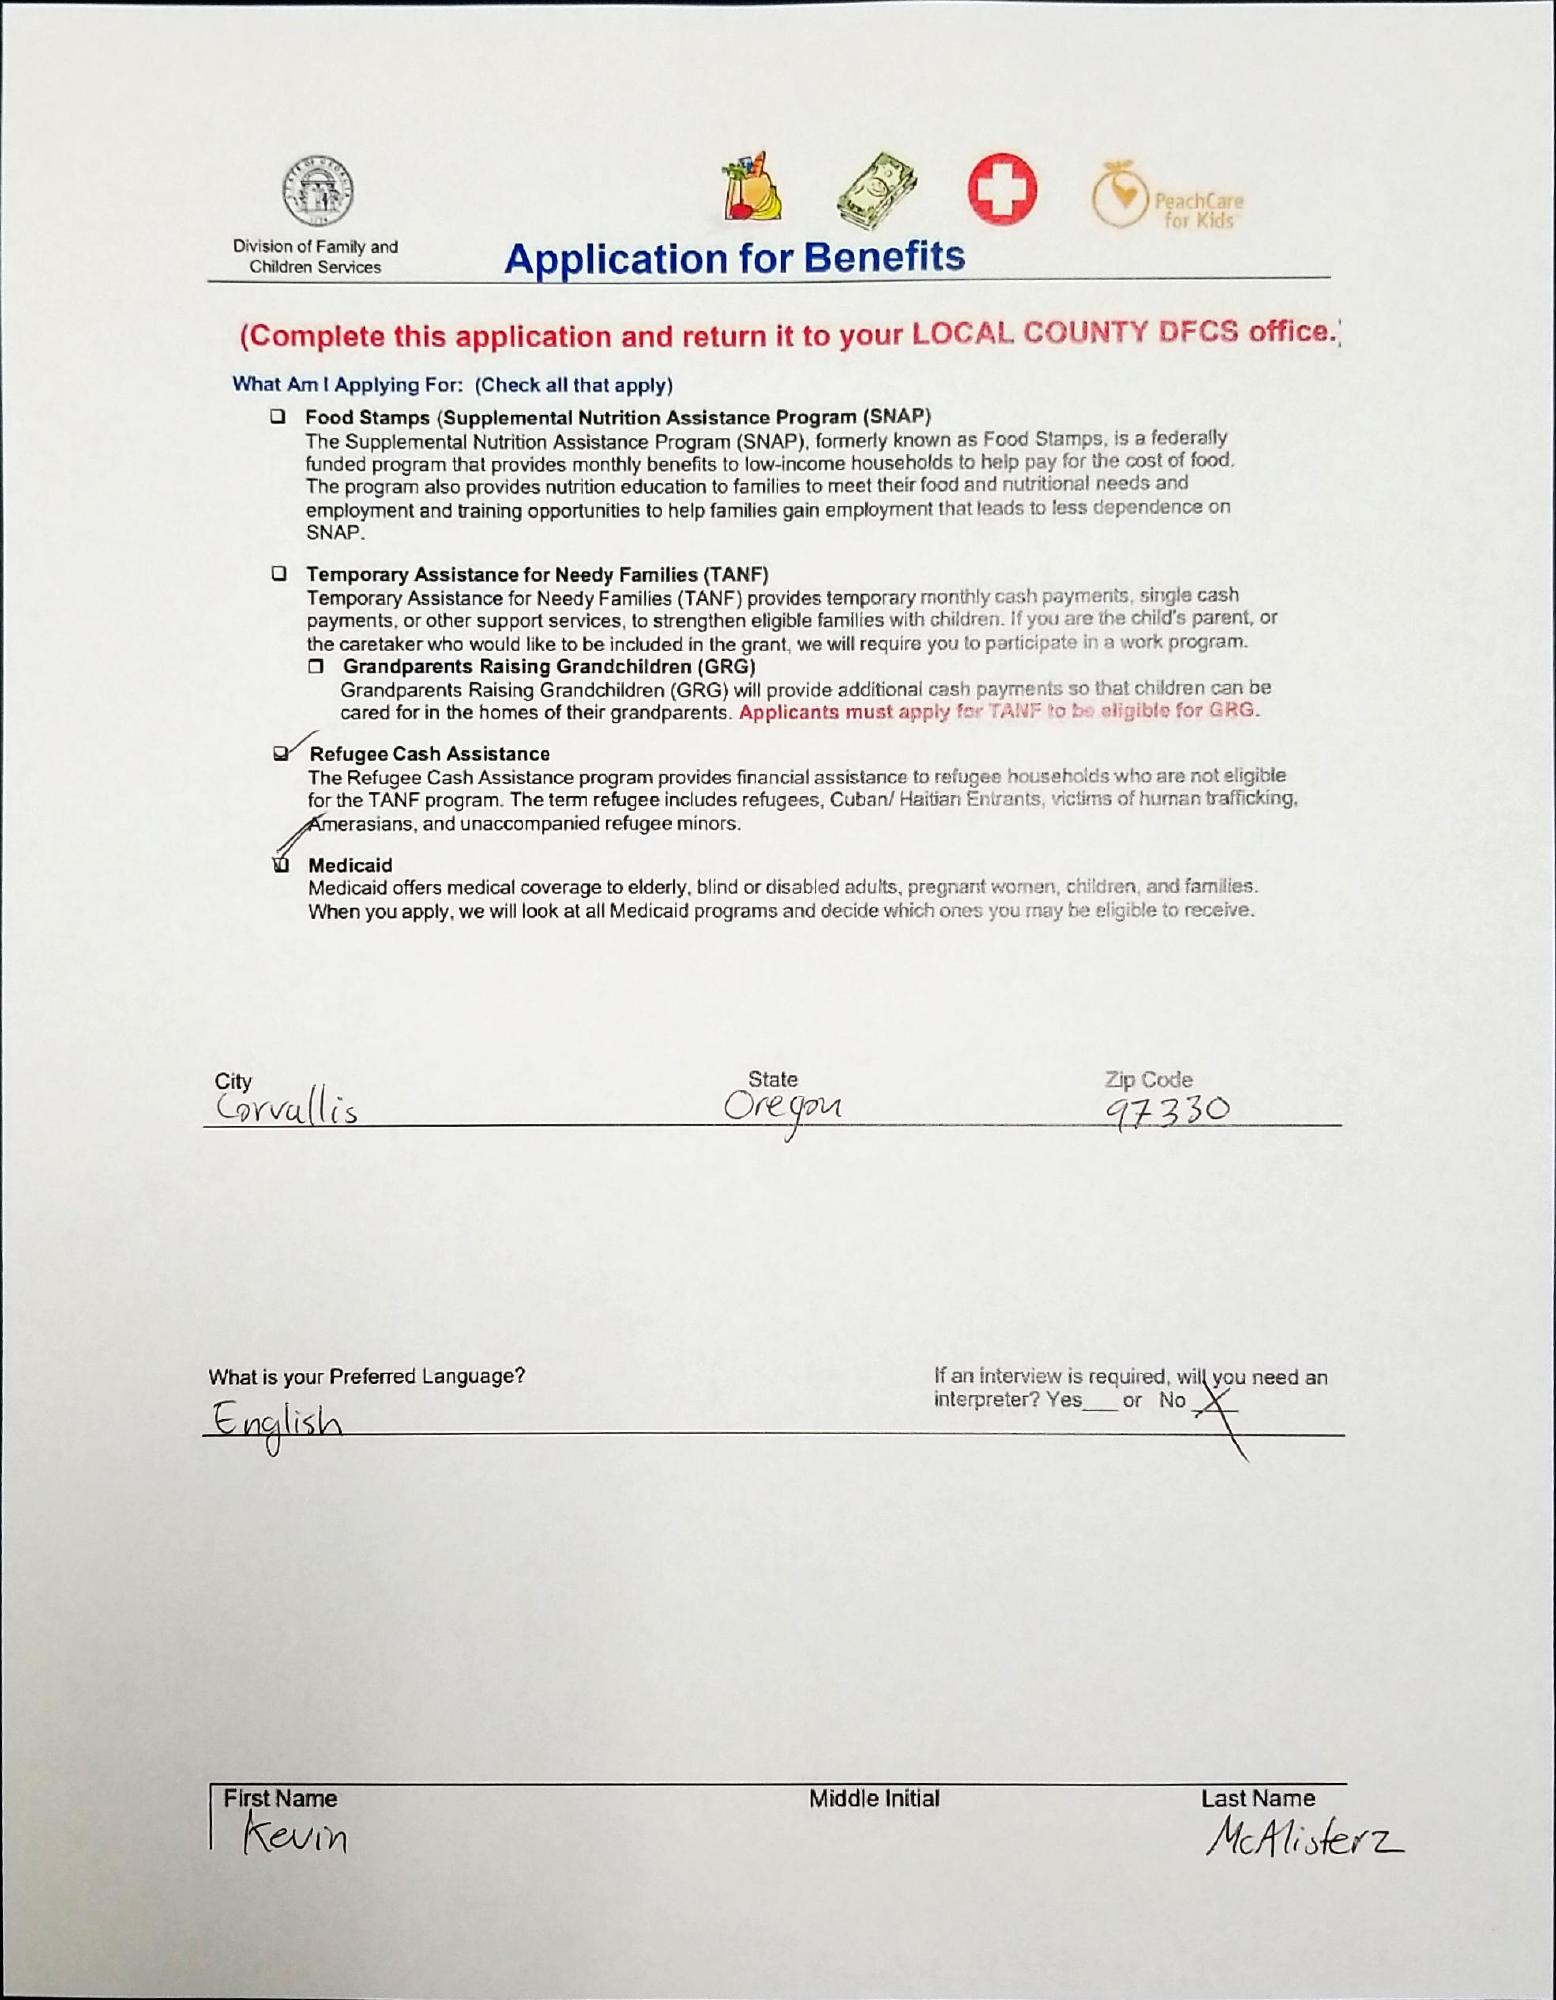 Division of Family and
Children Services
PeachCare
for Kids
Application for Benefits
(Complete this application and return it to your LOCAL COUNTY DFCS office.)
What Am I Applying For: (Check all that apply)
Food Stamps (Supplemental Nutrition Assistance Program (SNAP)
The Supplemental Nutrition Assistance Program (SNAP), formerly known as Food Stamps, is a federally
funded program that provides monthly benefits to low-income households to help pay for the cost of food.
The program also provides nutrition education to families to meet their food and nutritional needs and
employment and training opportunities to help families gain employment that leads to less dependence on
SNAP.
Temporary Assistance for Needy Families (TANF)
Temporary Assistance for Needy Families (TANF) provides temporary monthly cash payments, single cash
payments, or other support services, to strengthen eligible families with children. If you are the child's parent, or
the caretaker who would like to be included in the grant, we will require you to participate in a work program.
Grandparents Raising Grandchildren (GRG)
Grandparents Raising Grandchildren (GRG) will provide additional cash payments so that children can be
cared for in the homes of their grandparents. Applicants must apply for TANF to be eligible for GRG.
Refugee Cash Assistance
The Refugee Cash Assistance program provides financial assistance to refugee households who are not eligible
for the TANF program. The term refugee includes refugees, Cuban/ Haitian Entrants, victims of human trafficking,
Amerasians, and unaccompanied refugee minors.
Medicaid
Medicaid offers medical coverage to elderly, blind or disabled adults, pregnant women, children, and families.
When you apply, we will look at all Medicaid programs and decide which ones you may be eligible to receive.
City State Zip Code
Corvallis Oregon 97330
What is your Preferred Language? If an interview is required, will you need an
interpreter? Yes___ or No X
English
First Name Middle Initial Last Name
Kevin McAlisterz